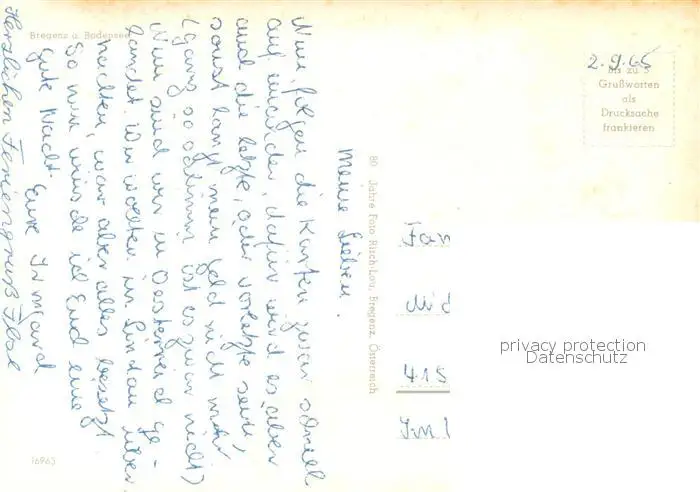 Bregenz a. Bodensee
2.9.65
Bis zu 5
Grußworten
als
Drucksache
frankieren
Meine Lieben.
Nun folgen die Karten zwar schnell
auf einander, dafür wird es aber
auch die letzte, oder vorletzte sein,
sonst langt mein Geld nicht mehr
(ganz so schlimm ist es zwar nicht)
Nun sind wir in Oesterreich ge-
landet. Wir wollten in Lindau über
nachten, war aber alles besetzt
So nun wünsche ich Euch eine
gute Nacht. Eure Irmgard
Herzlichen Feriengruß Ilse
80 Jahre Foto Risch-Lau, Bregenz, Österreich
Fam
415
privacy protection
Datenschutz
16963